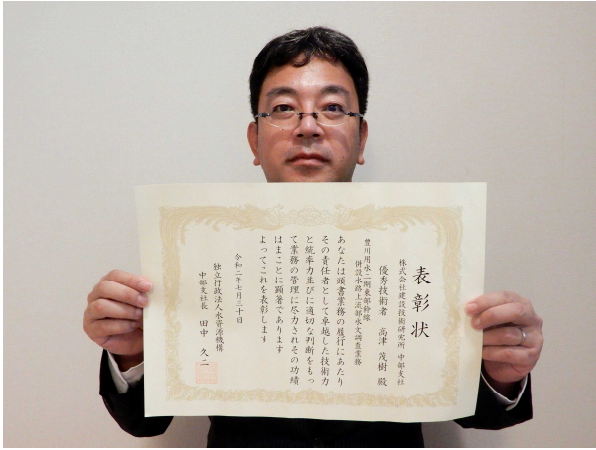 表彰状
株式会社建設技術研究所 中部支社
優秀技術者 高津 茂樹 殿
豊川用水二期東部幹線
併設水路上流部水文調査業務
あなたは頭書業務の履行にあたり
その責任者として卓越した技術力
と統率力並びに適切な判断をもっ
て業務の管理に尽力されその功績
はまことに顕著であります
よってこれを表彰します
令和二年七月三十日
独立行政法人水資源機構
中部支社長 田中 久二